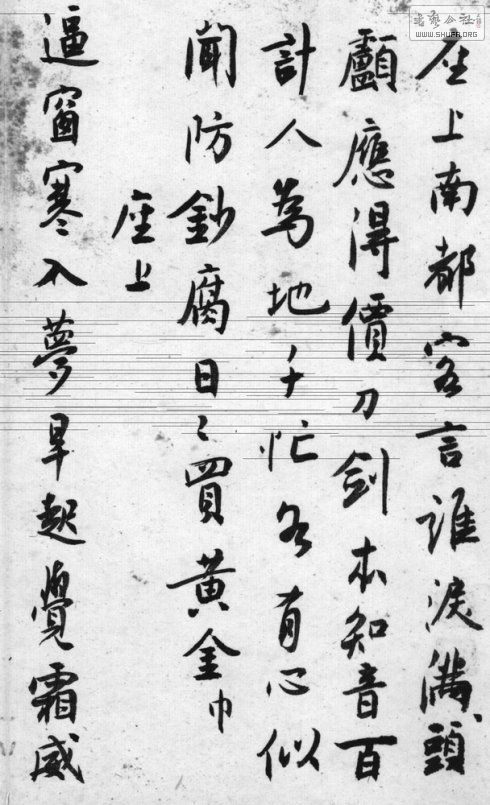 座上南都客言誰淚滿頭
顱應得價刀劍本知音百
計人為地千忙各有心似
聞防鈔腐日〻買黃金巾
座上
逼窗寒入夢早起覺霜威
書藝公社
WWW.SHUFA.ORG